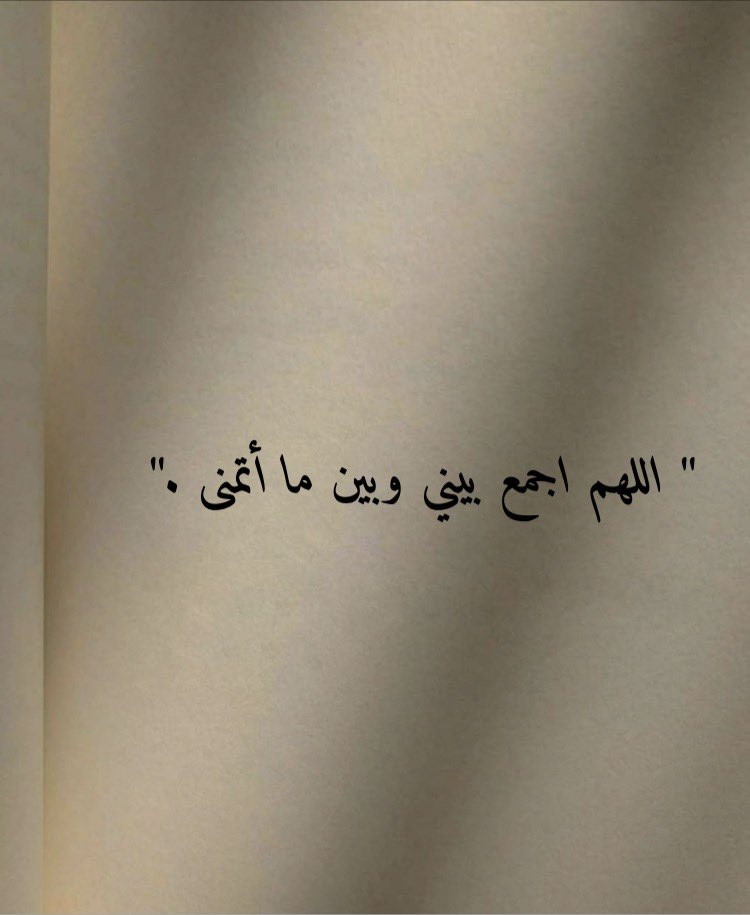 " اللهم اجمع بيني وبين ما أتمنى ."